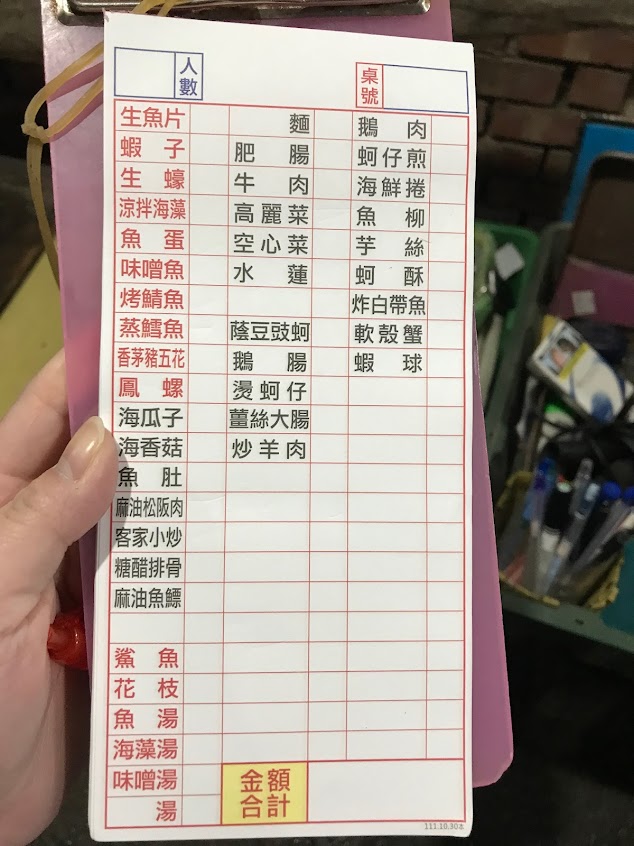 人數
桌號
生魚片
蝦子
生蠔
涼拌海藻
魚蛋
味噌魚
烤鯖魚
蒸鱈魚
香茅豬五花
鳳螺
海瓜子
海香菇
魚肚
麻油松阪肉
客家小炒
糖醋排骨
麻油魚鰾
鯊魚
花枝
魚湯
海藻湯
味噌湯
湯
麵
肥腸
牛肉
高麗菜
空心菜
水蓮
蔭豆豉蚵
鵝腸
燙蚵仔
薑絲大腸
炒羊肉
鵝肉
蚵仔煎
海鮮捲
魚柳
芋絲
蚵酥
炸白帶魚
軟殼蟹
蝦球
金額
合計
111.10.30本